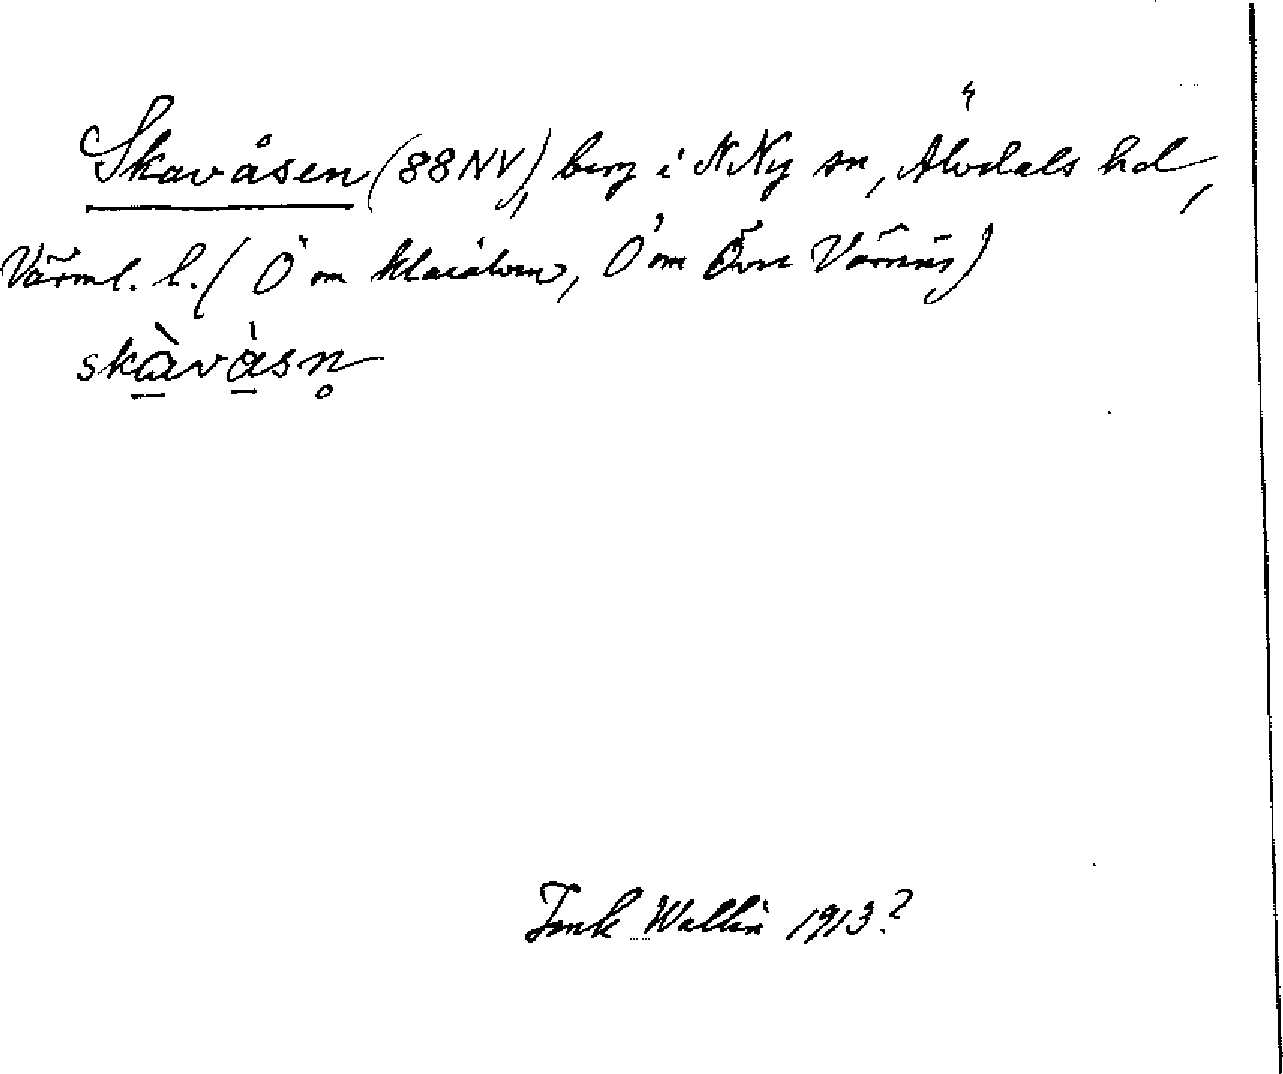 Skavåsen (88NV), berg i N Ny sn, Älvdals hd,
Värml. l. (Ö om Klarälven, Ö om Övre Värnäs)
skàvàsn̥
Wallin 1913?